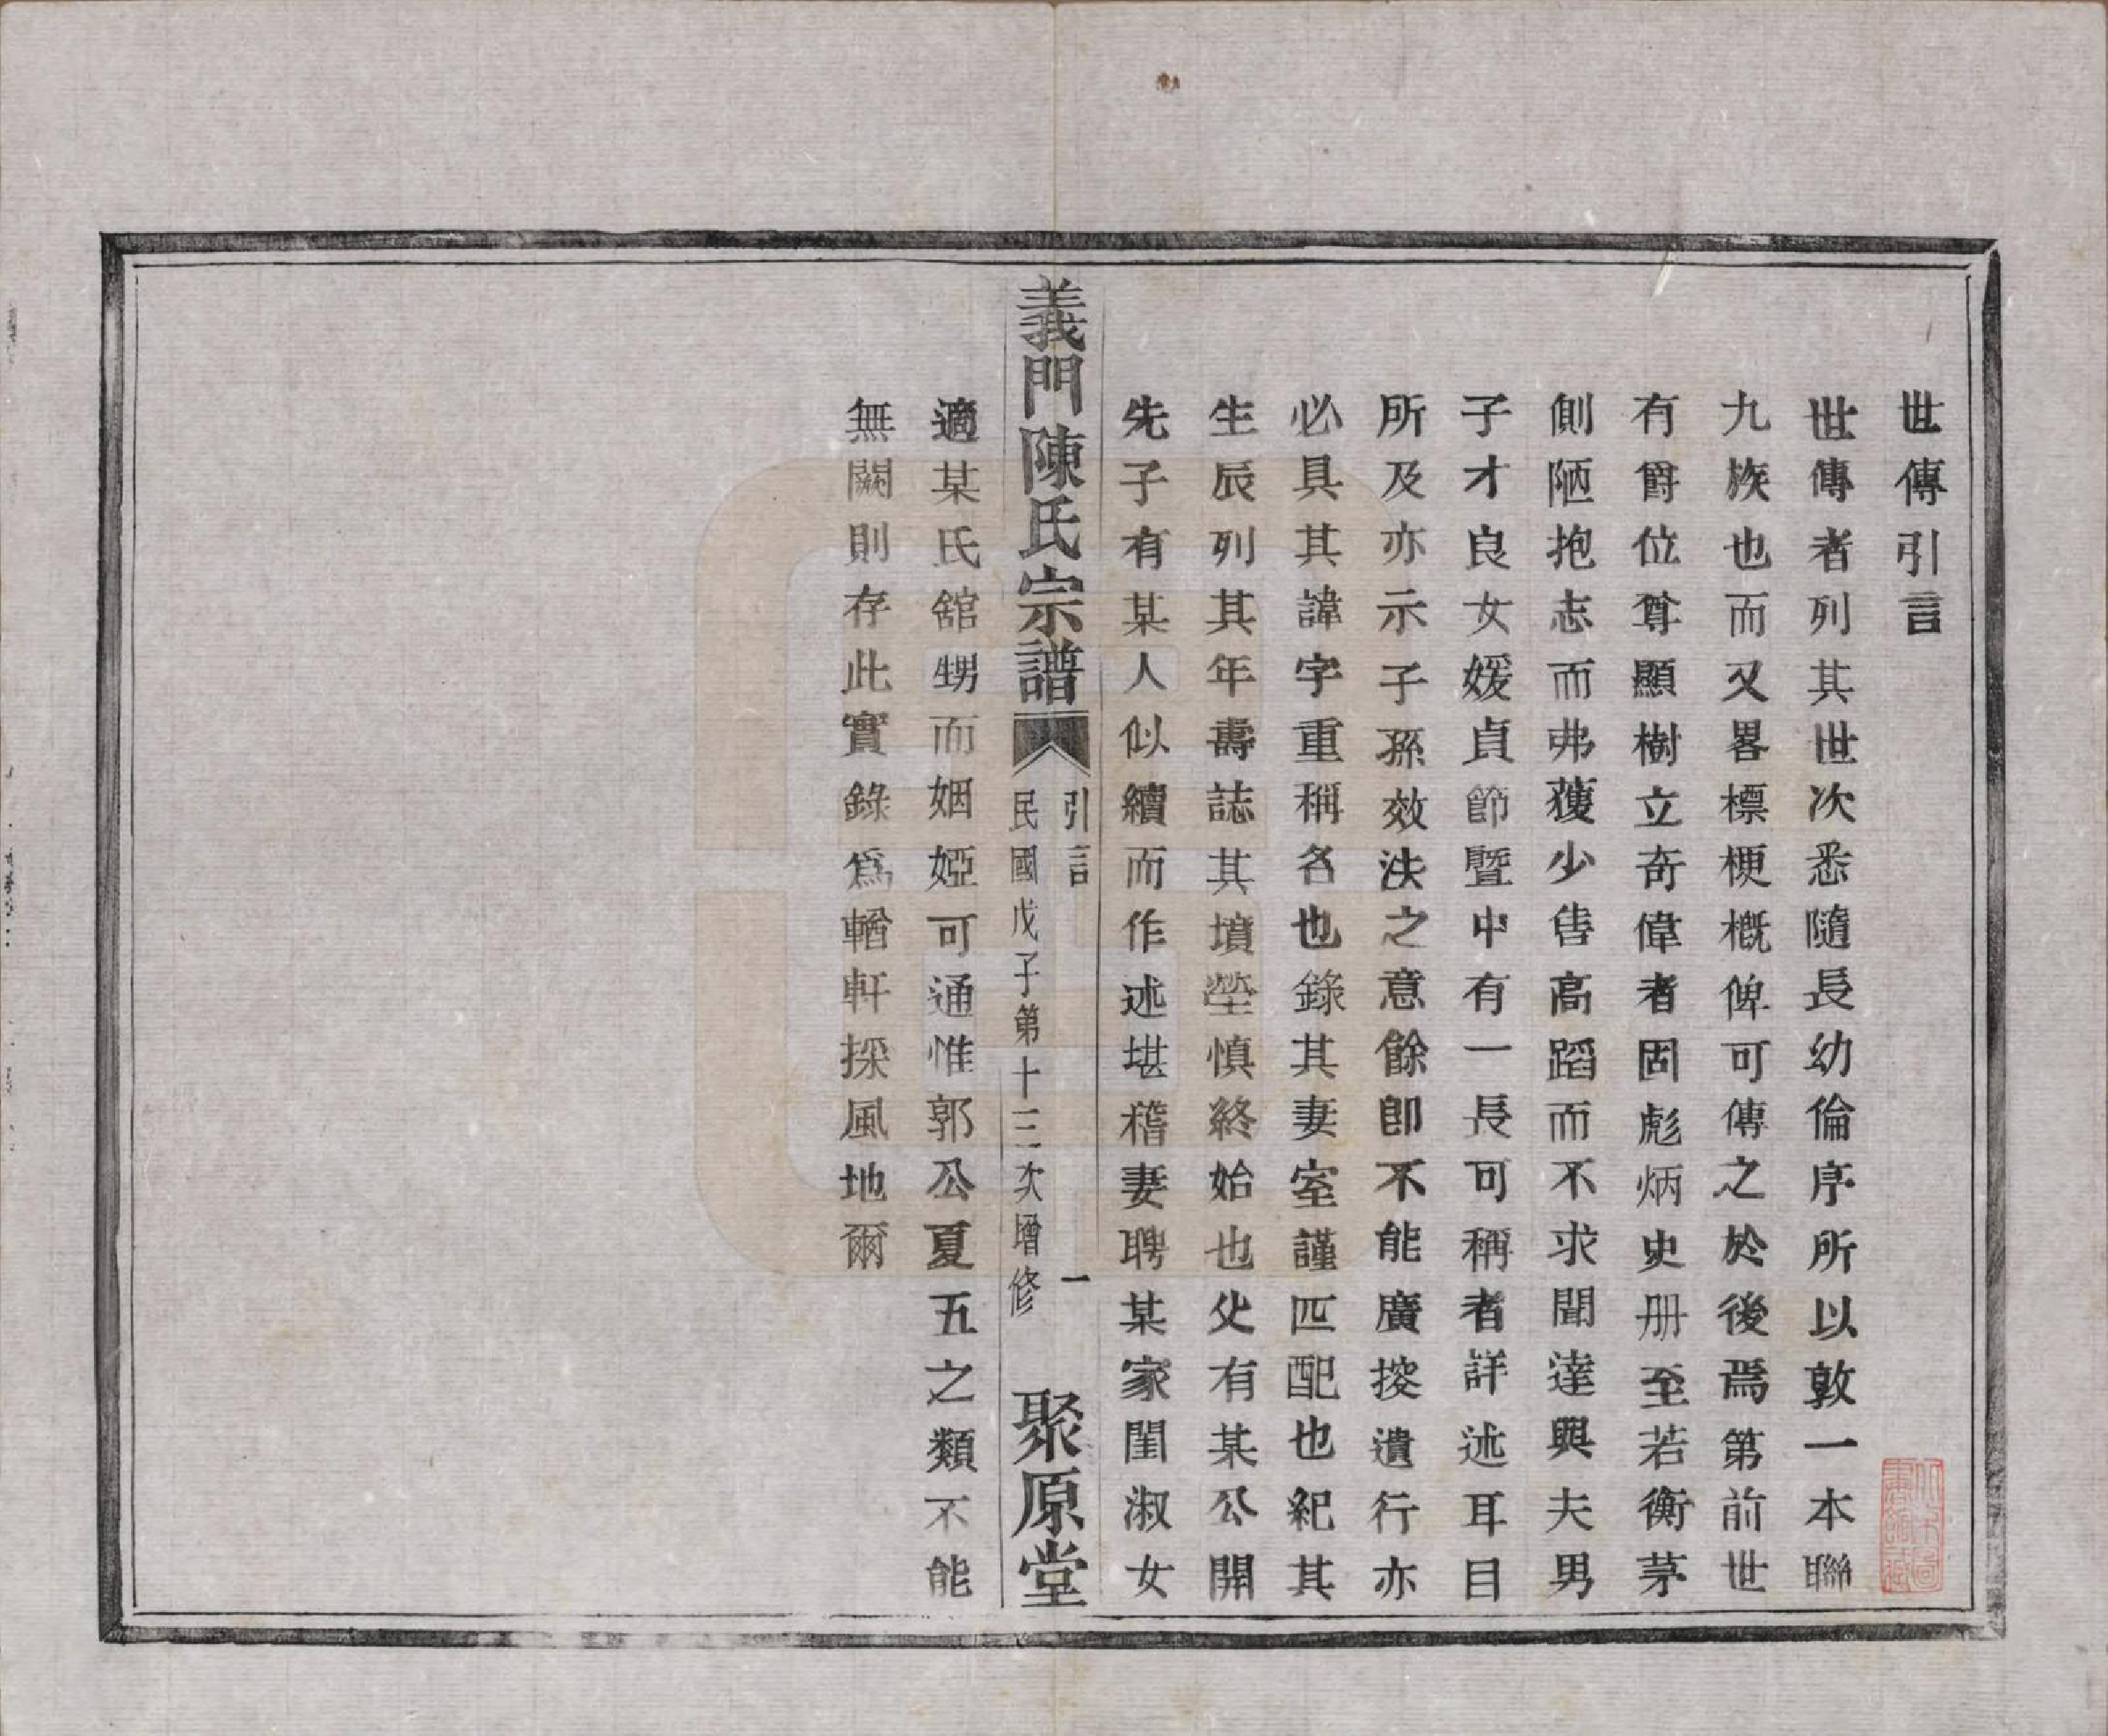 世傳引言
世傳者列其世次悉隨長幼倫序所以敦一本聯
九族也而又畧標梗概俾可傳之於後焉第前世
有爵位尊顯樹立奇偉者固彪炳史册至若衡茅
側陋抱志而弗獲少售高蹈而不求聞達與夫男
子才良女媛貞節暨中有一長可稱者詳述耳目
所及亦示子孫效法之意餘卽不能廣搜遺行亦
必具其諱字重稱名也錄其妻室謹匹配也紀其
生辰列其年壽誌其墳塋愼終始也父有某公開
先子有某人似續而作述堪稽妻聘某家閨淑女
義門陳氏宗譜
引言
一
民國戊子第十三次增修
聚原堂
適某氏舘甥而姻婭可通惟郭公夏五之類不能
無闕則存此實錄爲輶軒採風地爾